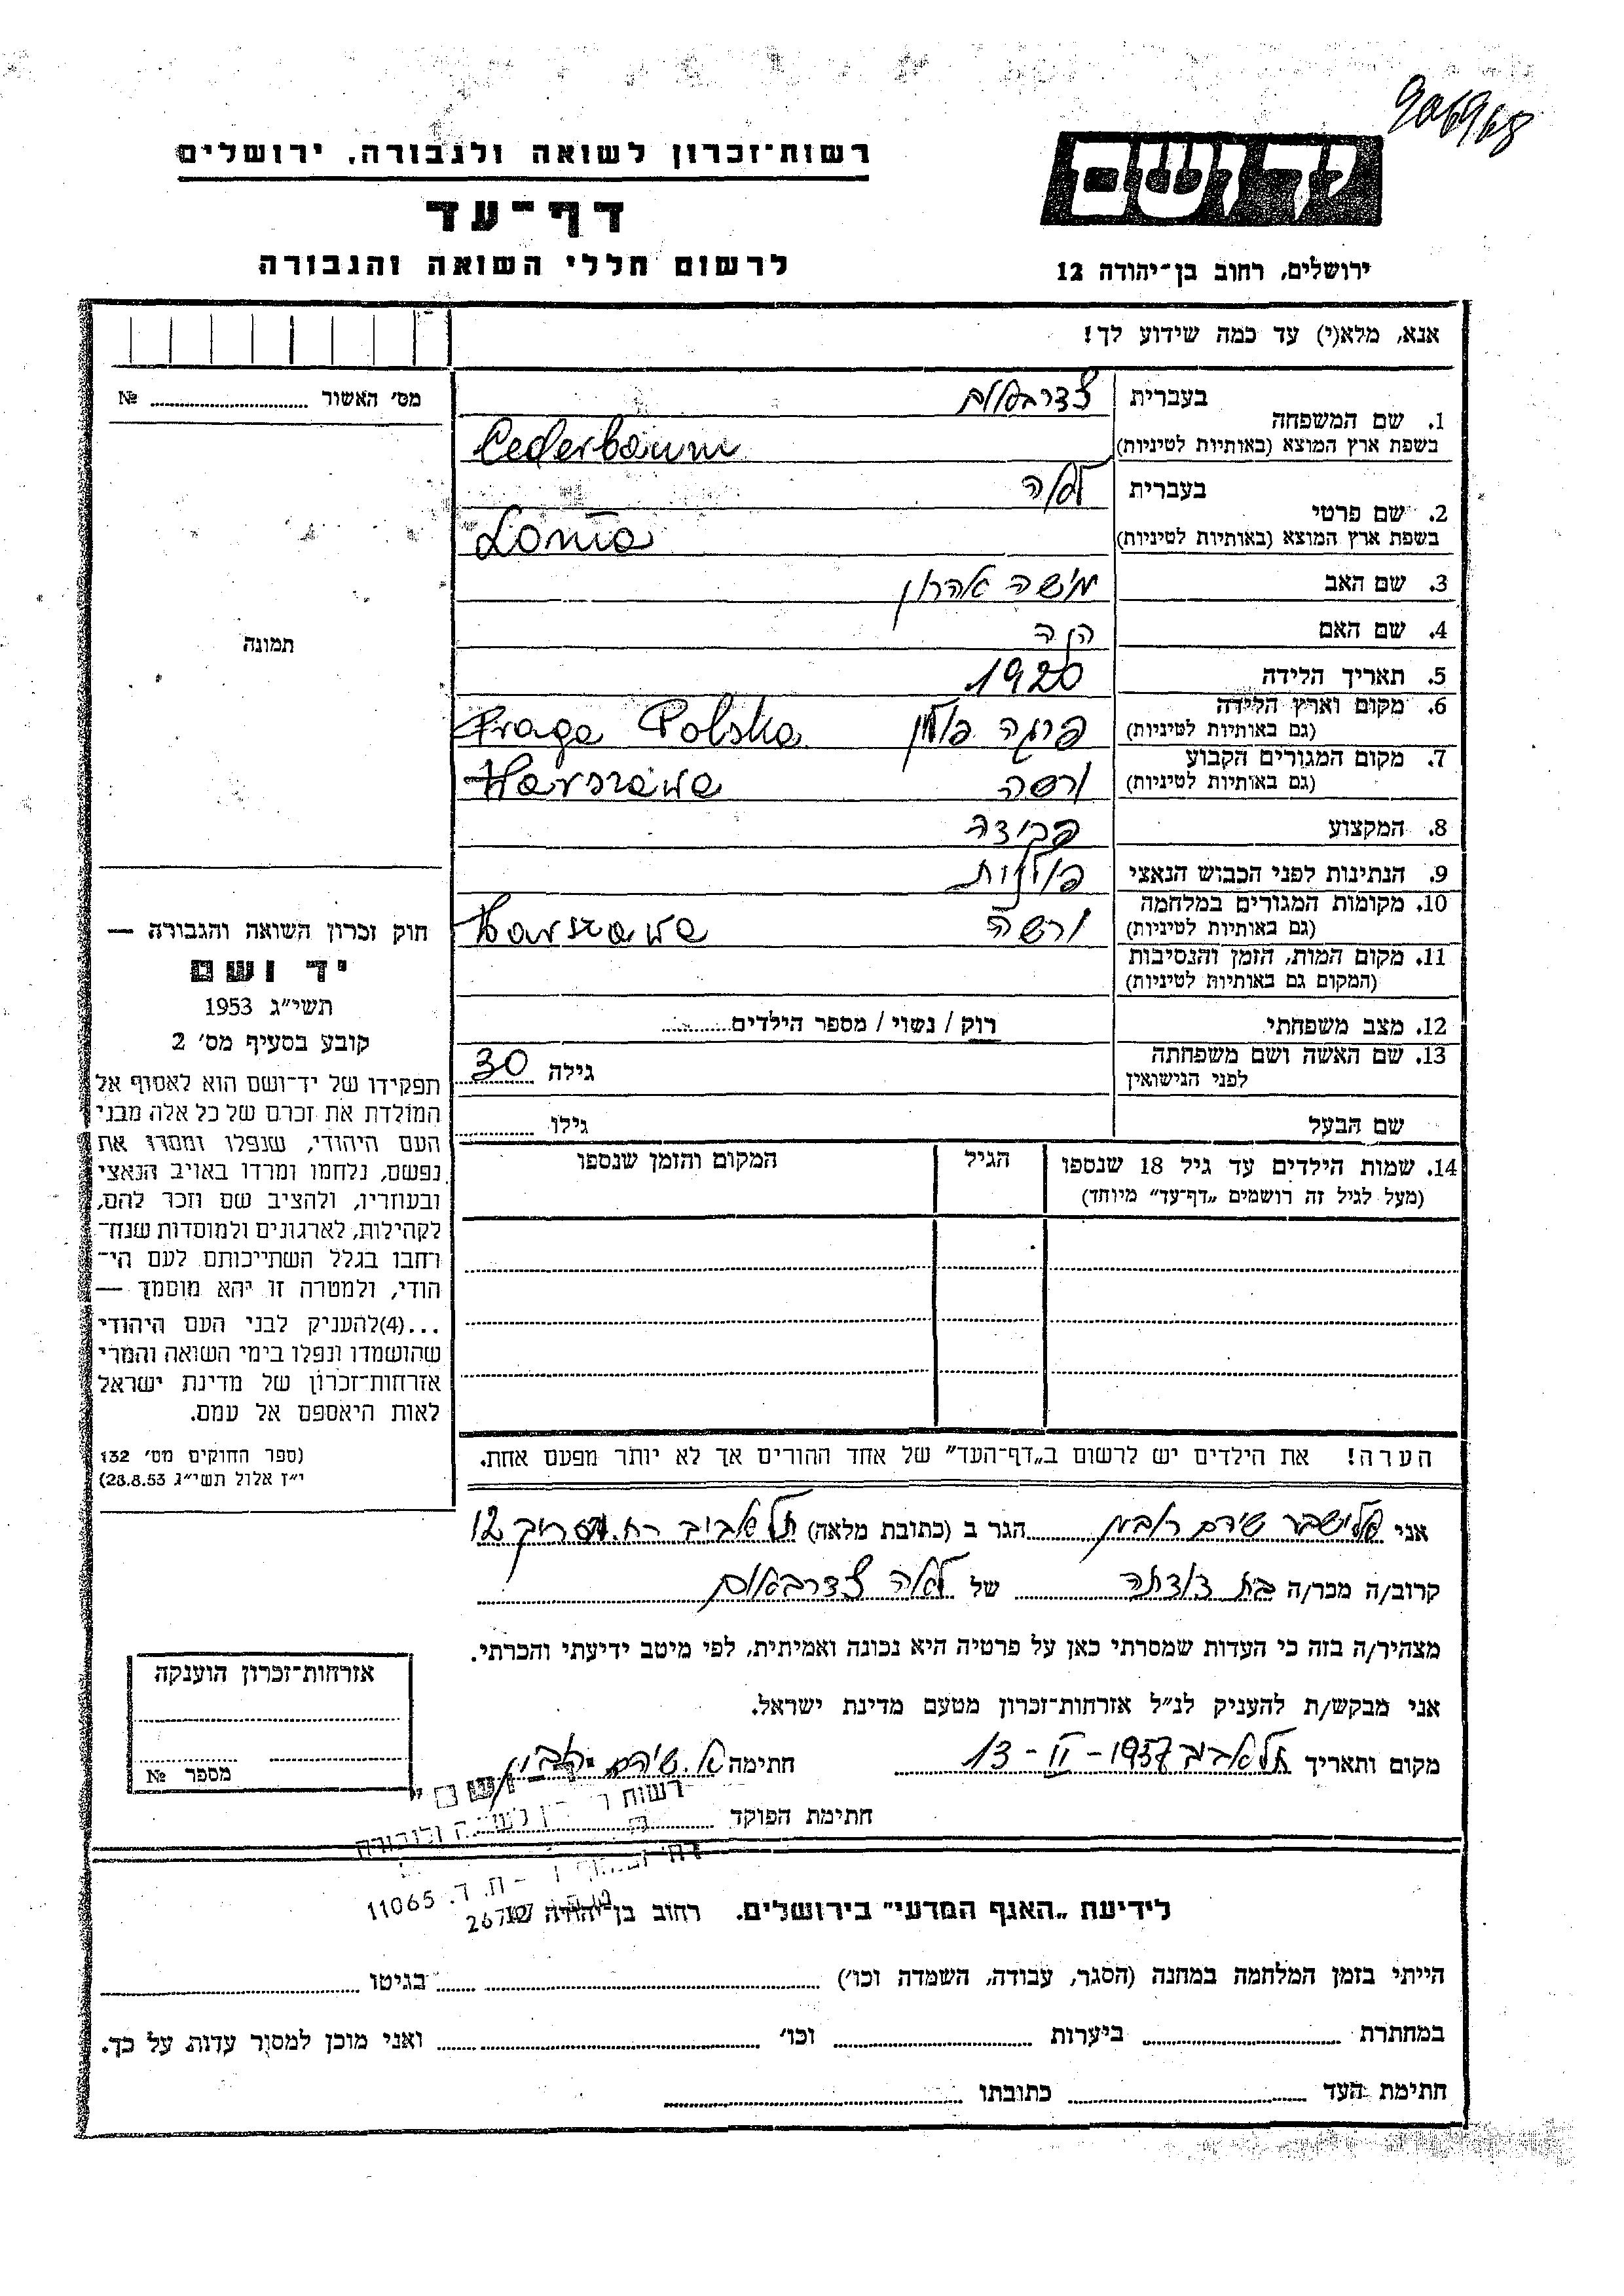 906968
יד ושם
רשות־זכרון לשואה ולגבורה, ירושלים
דף־עד
לרשום חללי השואה והגבורה
ירושלים, רחוב בן־יהודה 12
אנא, מלא(י) עד כמה שידוע לך!
מס׳ האשור №
1. שם המשפחה
בעברית צדרבאום
בשפת ארץ המוצא (באותיות לטיניות) Cederbaum
2. שם פרטי
בעברית לאה
בשפת ארץ המוצא (באותיות לטיניות) Lonia
3. שם האב משה אהרון
4. שם האם
5. תאריך הלידה 1920
6. מקום וארץ הלידה
(גם באותיות לטיניות) פרגה פולין Praga Polska
7. מקום המגורים הקבוע
(גם באותיות לטיניות) ורשה Warszawa
8. המקצוע פקידה
9. הנתינות לפני הכבוש הנאצי פולנית
10. מקומות המגורים במלחמה
(גם באותיות לטיניות) ורשה Warszawa
11. מקום המות, הזמן והנסיבות
(המקום גם באותיות לטיניות)
12. מצב משפחתי רוק / נשוי / מספר הילדים
13. שם האשה ושם משפחתה
לפני הנישואין גילה 30
שם הבעל גילו
14. שמות הילדים עד גיל 18 שנספו הגיל המקום והזמן שנספו
(מעל לגיל זה רושמים „דף־עד״ מיוחד)
תמונה
חוק זכרון השואה והגבורה —
יד ושם
תשי״ג 1953
קובע בסעיף מס׳ 2
תפקידו של יד־ושם הוא לאסוף אל
המולדת את זכרם של כל אלה מבני
העם היהודי, שנפלו ומסרו את
נפשם, נלחמו ומרדו באויב הנאצי
ובעוזריו, ולהציב שם וזכר להם,
לקהילות, לארגונים ולמוסדות שנח־
רחבו בגלל השתייכותם לעם הי־
הודי, ולמטרה זו יהא מוסמך —
...(4)להעניק לבני העם היהודי
שהושמדו ונפלו בימי השואה והמרי
אזרחות־זכרון של מדינת ישראל
לאות היאספם אל עמם.
(ספר החוקים מס׳ 132
י״ז אלול תשי״ג 28.8.53)
הערה! את הילדים יש לרשום ב„דף־העד״ של אחד ההורים אך לא יותר מפעם אחת.
אני הגר ב (כתובת מלאה) תל אביב רח. 12
קרוב/ה מכר/ה בת דודתה של לאה צדרבאום
מצהיר/ה בזה כי העדות שמסרתי כאן על פרטיה היא נכונה ואמיתית, לפי מיטב ידיעתי והכרתי.
אני מבקש/ת להעניק לנ״ל אזרחות־זכרון מטעם מדינת ישראל.
מקום ותאריך תל אביב 13 - II - 1957 חתימה
חתימת הפוקד
אזרחות־זכרון הוענקה
מספר №
ת. ד. 11065
לידיעת „האגף המדעי״ בירושלים. רחוב בן־יהודה
הייתי בזמן המלחמה במחנה (הסגר, עבודה, השמדה וכו׳) בגיטו
במחתרת ביערות וכו׳ ואני מוכן למסור עדות על כך.
חתימת העד כתובתו